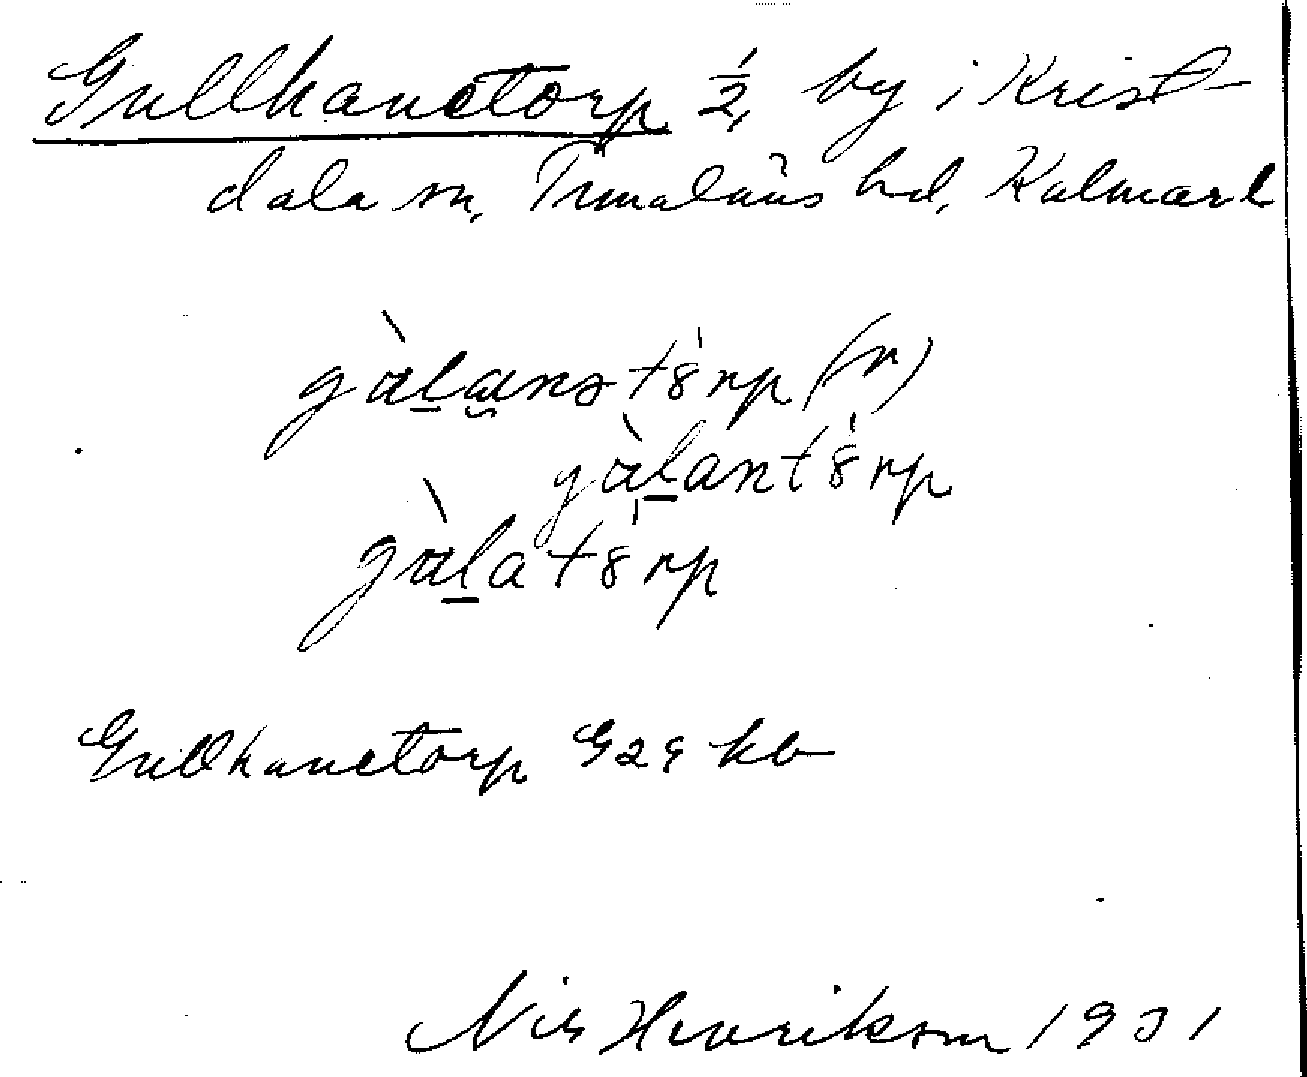 Gullhanetorp ½, by i Krist-
dala sn, Tunaläns hd, Kalmar l
gàlanstórp (r)
gàlantórp
gàlatórp
Gullhanetorp G29 kb
Nils Henrikson 1931